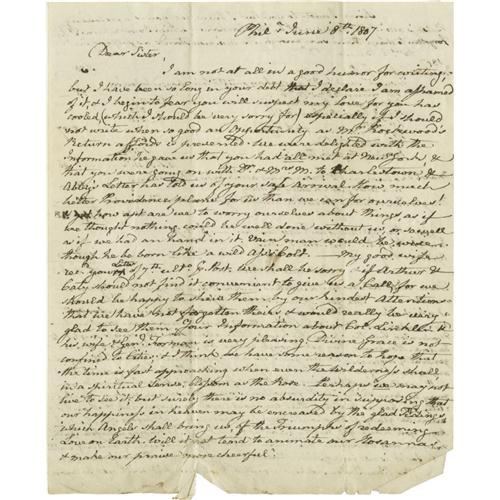 Phila June 8th. 1807
Dear Sister,
I am not at all in a good humor for writing,
but I have been so long in your debt that I declare I am ashamed
of it, & I begin to fear you will suspect my love for you has
cooled, (which I should be very sorry for) especially if I should
not write when so good an Opportunity as Mr. Rockwood's
Return affords is presented. We were delighted with the
Information he gave us that you had all met at New York, &
that you were going on with Dr. & Mrs. M. to Charlestown &
Abby's Letter has told us of your safe Arrival. How much
better Providence plans for us than we can for ourselves!
yet how apt are we to worry ourselves about things as if
we thought nothing could be well done without us, or as well
as if we had an hand in it. Vain man would be wise
though he be born like a wild Ass's Colt. — My good wife
recd. your Letter of 7th
We shall be sorry if Arthur &
Caty should not find it convenient to give us a Call, for we
should be happy to shew them by our kindest Attentions
that we have not forgotten theirs & would really be very
glad to see them. Your Information about Col.
his wife & Genl. is very pleasing. Divine Grace is not
confined to & I think we have some reason to hope that
the time is fast approaching when even the Wilderness shall
in a spiritual Sense, Blossom as the Rose. Perhaps we may not
live to see it, but surely there is no absurdity in supposing that
our happiness in heaven may be encreased by the glad Tidings
which Angels shall bring us, of the Triumphs of redeeming
Love on Earth. Will it not tend to animate our Hosannas
& make our praise more cheerful?